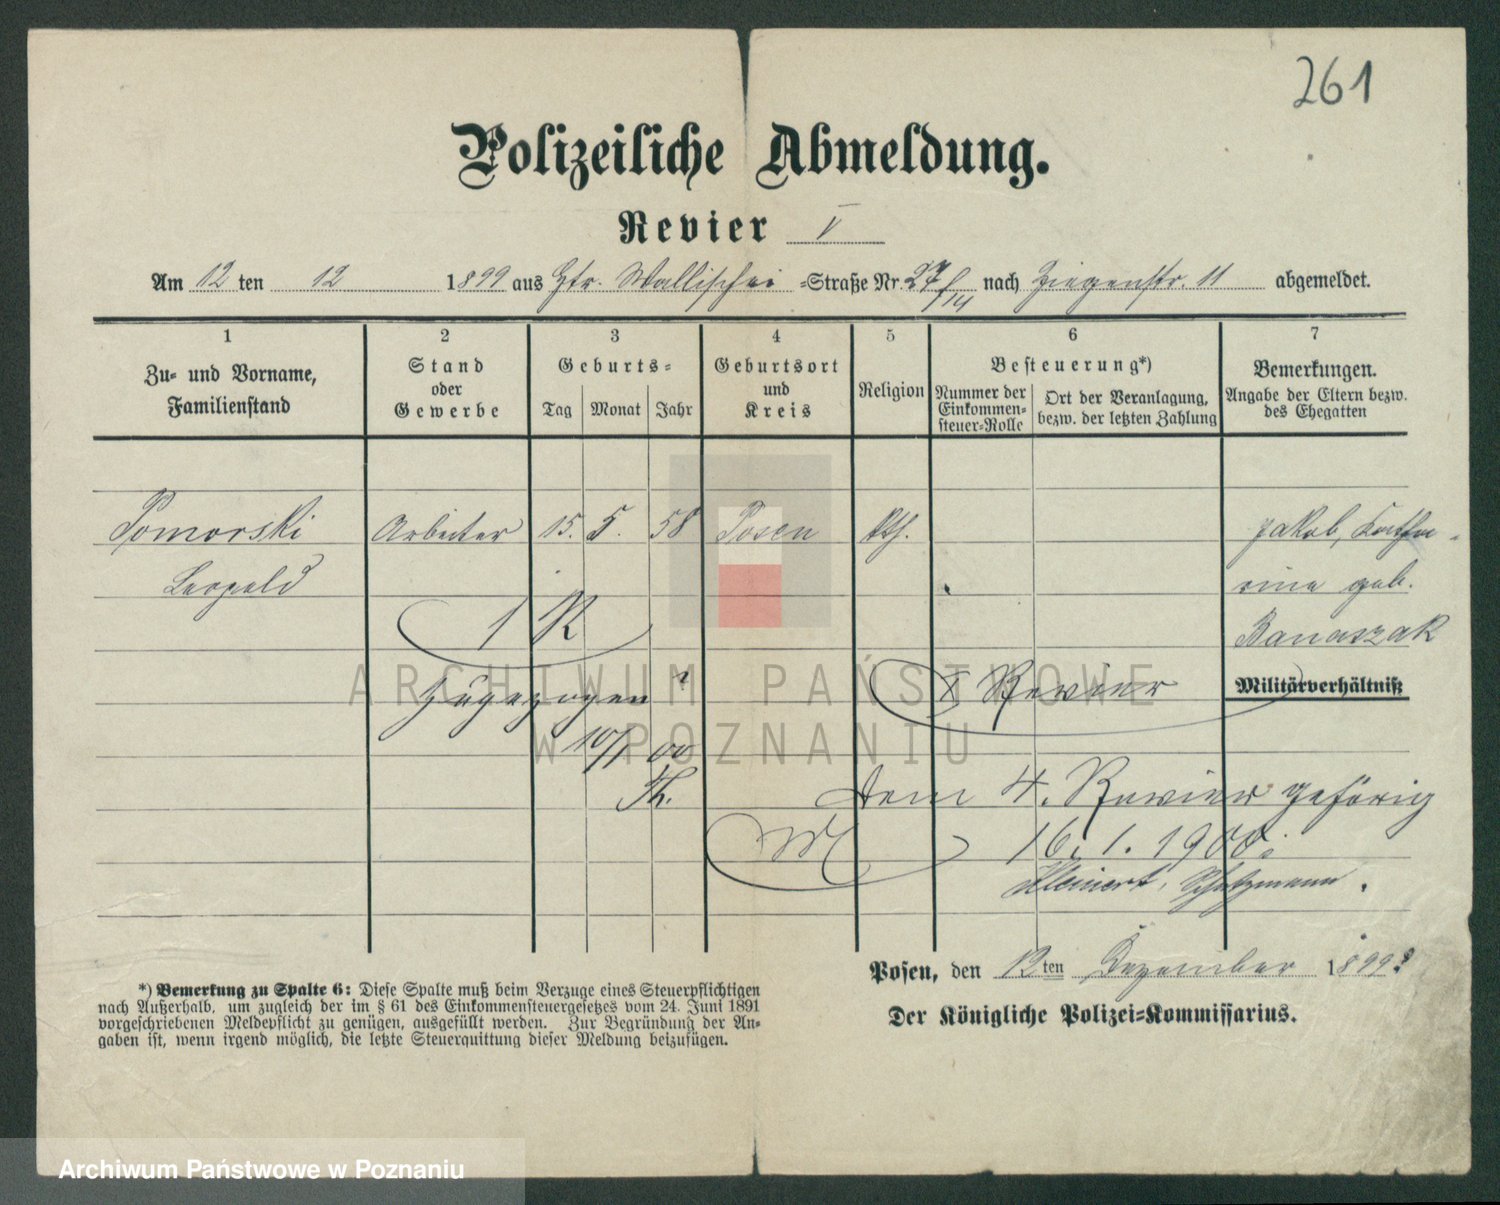 261
Polizeiliche Abmeldung.
Revier V
Am 12 ten 12 1899 aus Gr. Wallischei =Straße Nr. 27/14 nach Ziegenstr. 11 abgemeldet.
1 2 3 4 5 6 7
Zu- und Vorname, Familienstand
Stand oder Gewerbe
Geburts=
Tag Monat Jahr
Geburtsort und Kreis
Religion
Besteuerung*)
Nummer der Einkommen-steuer-Rolle
Ort der Veranlagung, bezw. der letzten Zahlung
Bemerkungen.
Angabe der Eltern bezw. des Ehegatten
Pomorski Arbeiter 15. 5. 58 Posen kth. Jakob, Katha-
Leopold rina geb.
1 K Banaszak
Zugezogen? V Revier Militärverhältniß
10/1 00
Th. dem 4. Revier gehörig
M 16. 1. 1900.
Kleinert, Schutzmann.
Posen, den 12 ten Dezember 1899.
Der Königliche Polizei=Kommissarius.
*) Bemerkung zu Spalte 6: Diese Spalte muß beim Verzuge eines Steuerpflichtigen
nach Außerhalb, um zugleich der im § 61 des Einkommensteuergesetzes vom 24. Juni 1891
vorgeschriebenen Meldepflicht zu genügen, ausgefüllt werden. Zur Begründung der An-
gaben ist, wenn irgend möglich, die letzte Steuerquittung dieser Meldung beizufügen.
ARCHIWUM PAŃSTWOWE
W POZNANIU
Archiwum Państwowe w Poznaniu